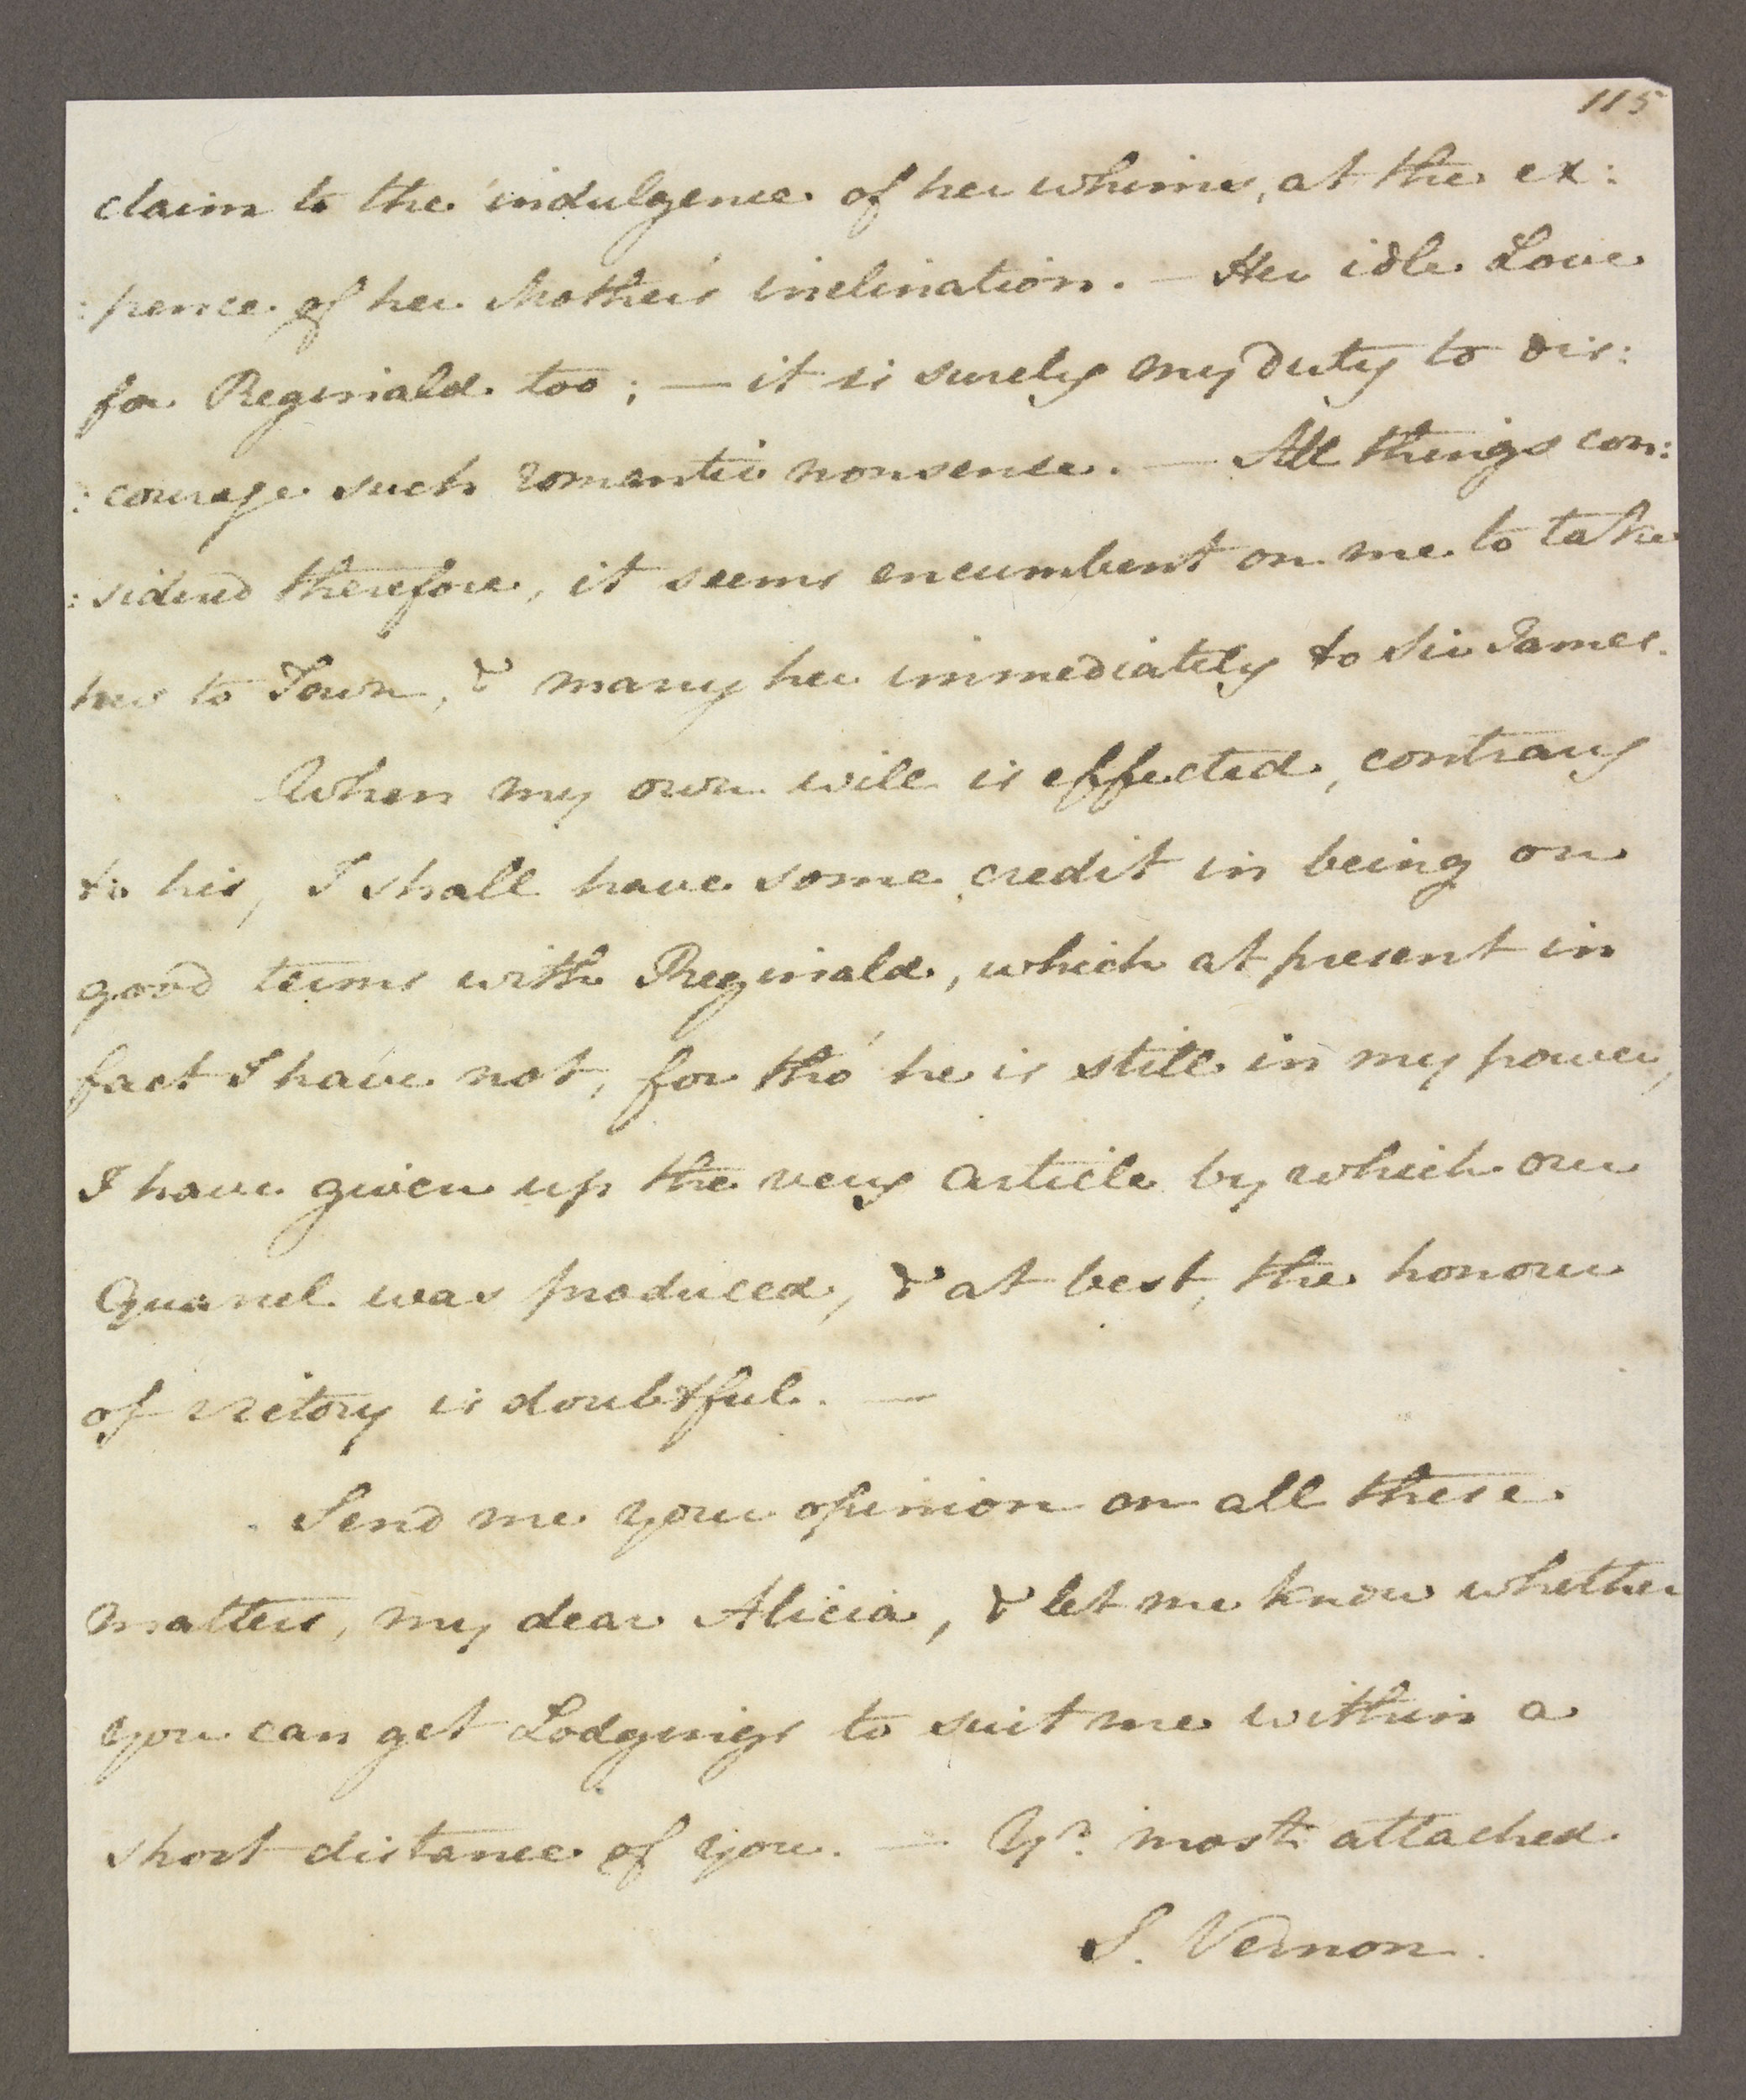 115
claim to the indulgence of her whims, at the ex:
:pence of her Mother's inclination. — Her idle Love
for Reginald too; — it is surely my duty to dis:
:courage such romantic nonsense. — All things con:
:sidered therefore, it seems encumbent on me to take
her to Town, & marry her immediately to Sir James.
When my own will is effected, contrary
to his, I shall have some credit in being on
good terms with Reginald, which at present in
fact I have not, for tho' he is still in my power,
I have given up the very article by which our
Quarrel was produced, & at best, the honour
of victory is doubtful. —
Send me your opinion on all these
matters, my dear Alicia, & let me know whether
you can get Lodgings to suit me within a
short distance of you. — Yr. most attached
S. Vernon.